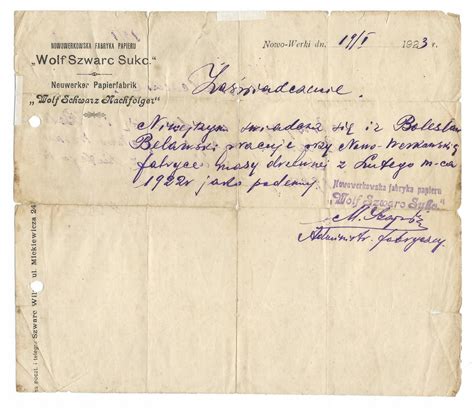 NOWOWERKOWSKA FABRYKA PAPIERU
„Wolf Szwarc Sukc."
Neuwerker Papierfabrik
„Wolf Schwarz Nachfolger"
Nowo-Werki dn. 19/I 1923 r.
Zaświadczenie.
Niniejszym świadczę się iż Bolesław
pracuje przy Nowo-Werkowskiej
fabryce masy drzewnej z Lutego m-ca
1922r jako podemny.
Nowowerkowska fabryka papieru
„Wolf Szwarc Sukc."
M.
Administr. fabryczny
ul. Mickiewicza 24
Szwarc